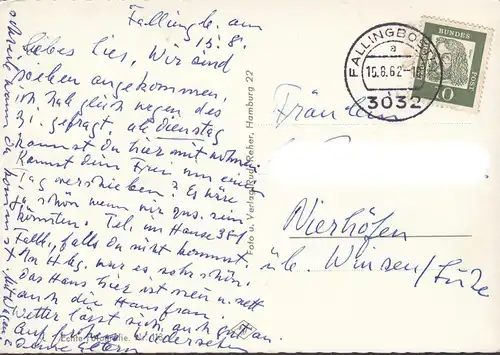 Fallingb. am
15. 8.
Liebes Lies, Wir sind
soeben angekommen,
ich hab gleich wegen des
Zi. gefragt, ab Dienstag
kannst du hier mit wohnen.
Kannst dein Frei um einen
Tag verschieben? Es wäre
ja schön wenn wir zus. sein
könnten. Tel. im Hause 381
Falls, falls du nicht kommst.
In Hbg. war es sehr schön.
das Haus hier ist neu u. nett
auch die Hausfrau.
Wetter lässt sich auch gut an.
Auf frohes Wiedersehen
Deine Eltern
schreib wann du kommst
Foto u. Verlag Rud. Reher, Hamburg 22
Echte Fotografie.
FALLINGBOSTEL
a
15.8.62
3032
DEUTSCHE BUNDESPOST
10
Fräulein
Vierhöfen
üb. Winsen/Luhe